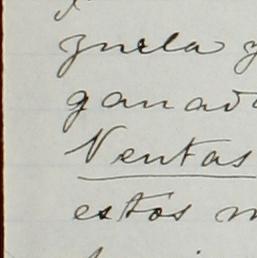 zuela y
ganad
Ventas
estos m